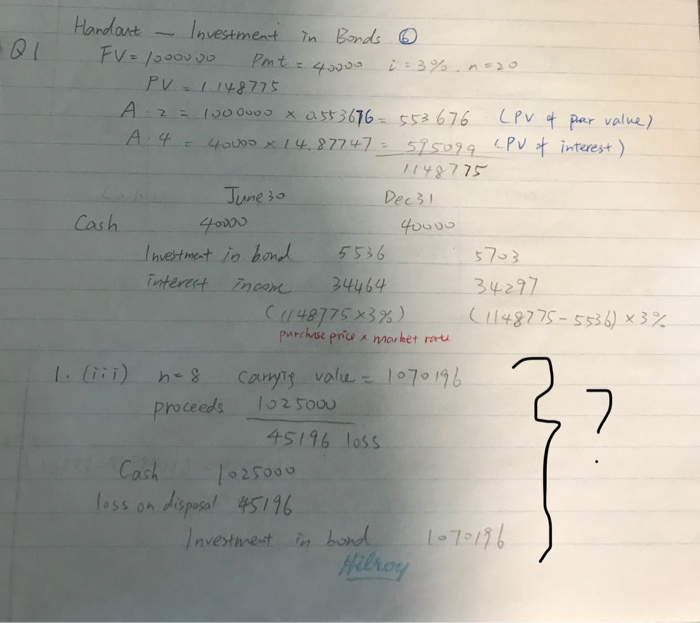 Handout — Investment in Bonds ⑥
Q1 FV = 1000000 Pmt = 40000 i = 3%. n = 20
PV = 1148775
A. 2 = 1000000 × 0.553676 = 553676 (PV of par value)
A. 4 = 40000 × 14.87747 = 595099 (PV of interest)
1148775
June 30 Dec 31
Cash 40000 40000
Investment in bond 5536 5703
interest income 34464 34297
(1148775 × 3%) (1148775 - 5536) × 3%
purchase price × market rate
1. (iii) n = 8 carrying value = 1070196
proceeds 1025000
45196 loss
Cash 1025000
loss on disposal 45196
Investment in bond 1070196
Hilroy
} ?